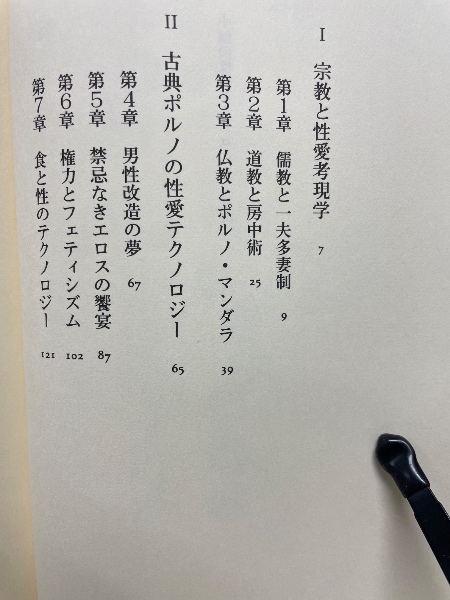 I 宗教と性愛考現学 7
第1章 儒教と一夫多妻制 9
第2章 道教と房中術 25
第3章 仏教とポルノ・マンダラ 39
II 古典ポルノの性愛テクノロジー 65
第4章 男性改造の夢 67
第5章 禁忌なきエロスの饗宴 87
第6章 権力とフェティシズム 102
第7章 食と性のテクノロジー 121